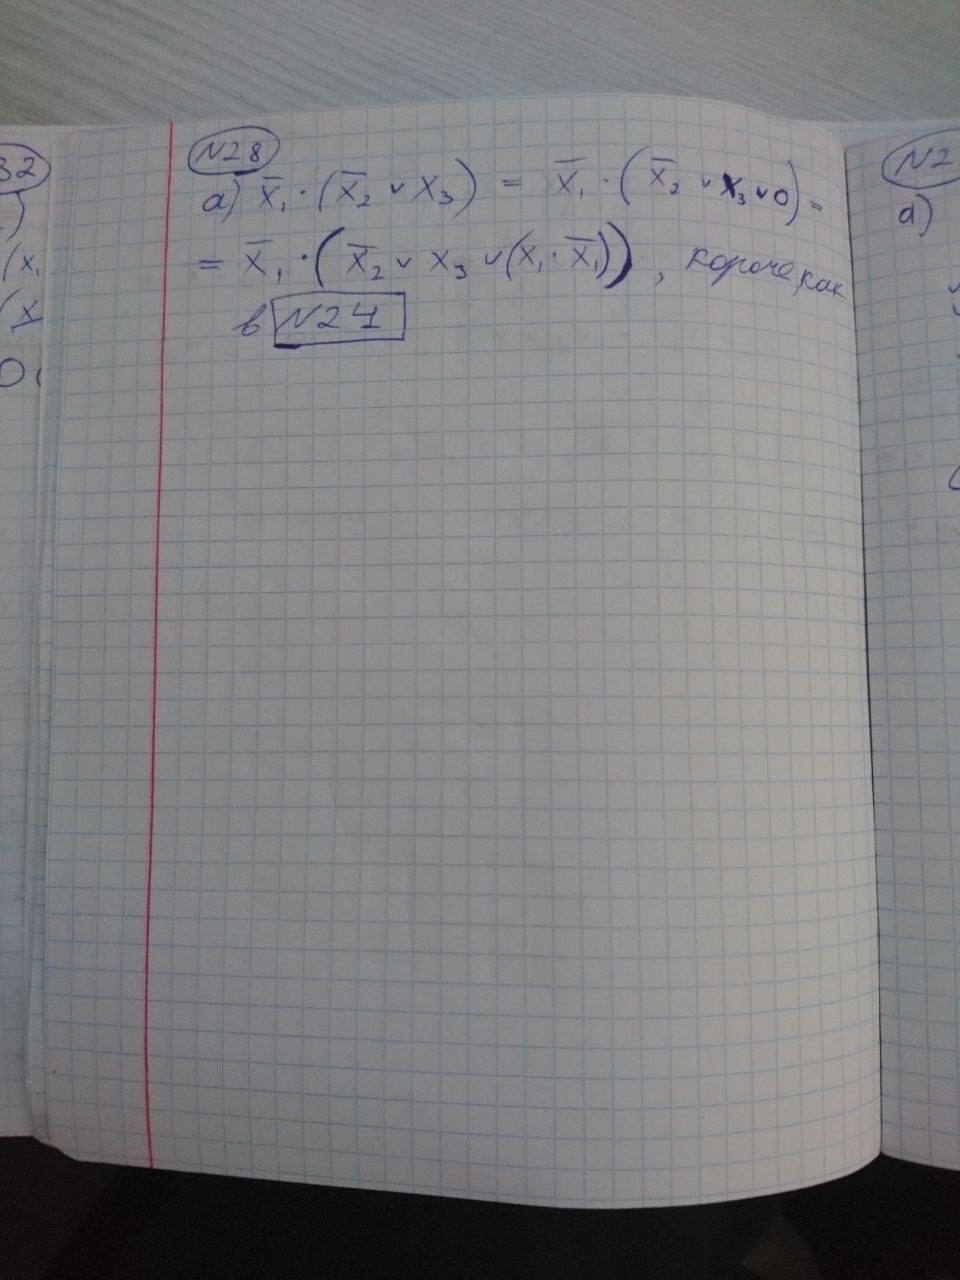 32
(x₁
(x
0
N28
а) x̅₁ · (x̅₂ ∨ x₃) = x̅₁ · (x̅₂ ∨ x₃ ∨ 0) =
= x̅₁ · (x̅₂ ∨ x₃ ∨ (x₁ · x̅₁)), короче, как
в N24
N2
а)